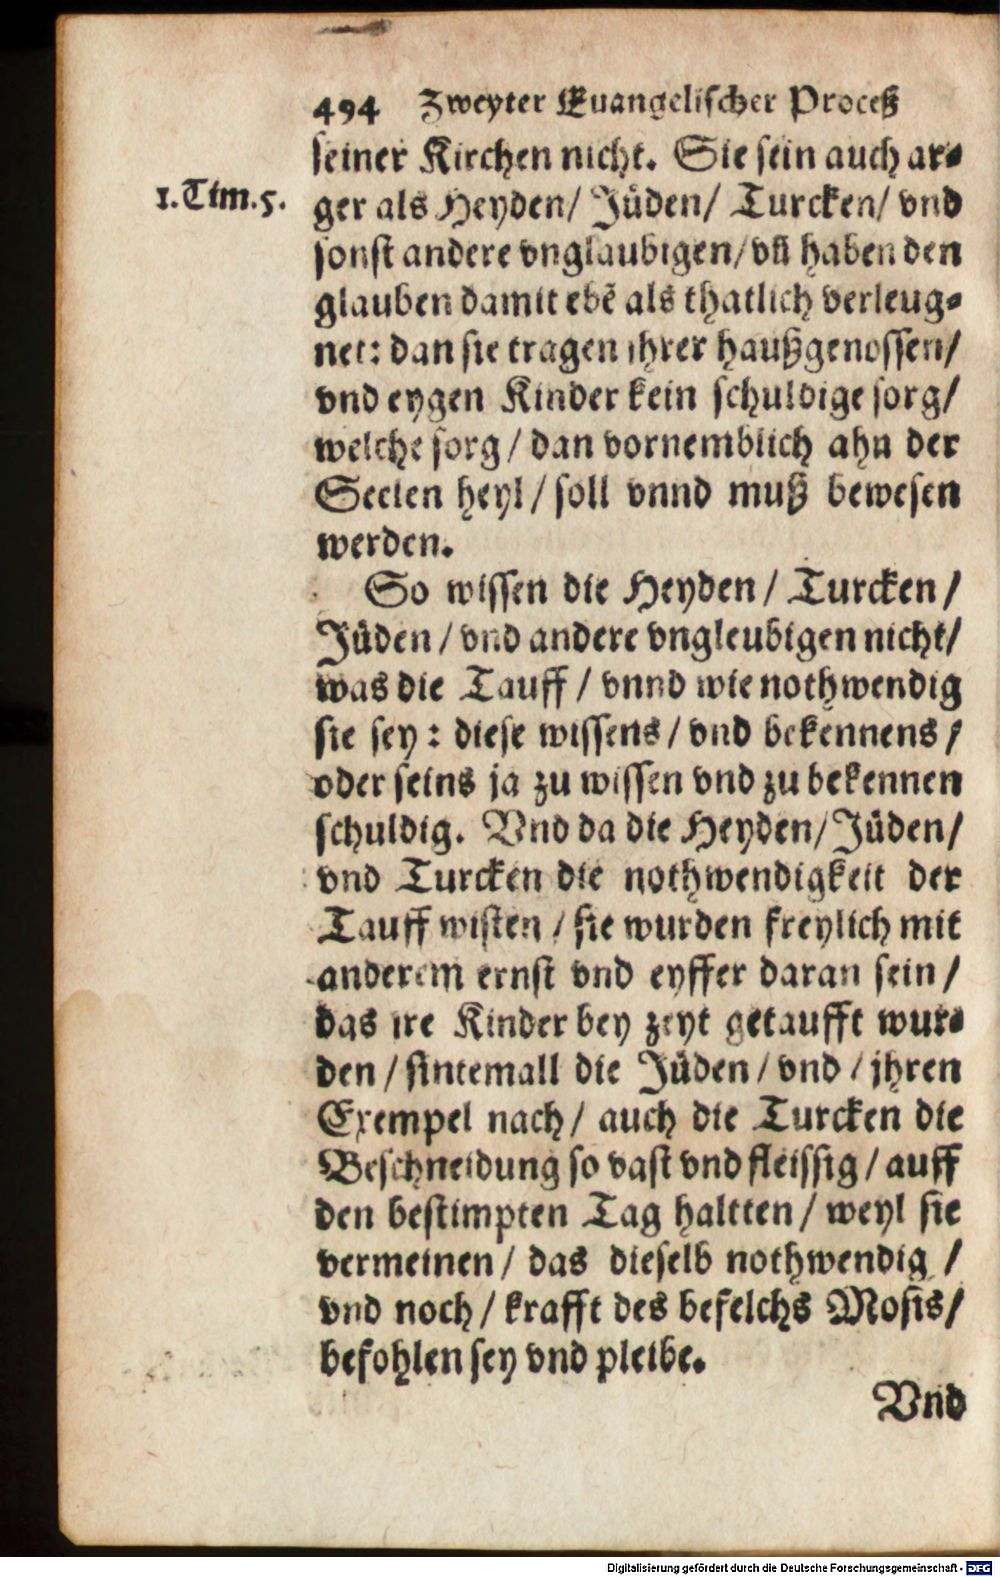 494 Zweyter Euangelischer Proceß
seiner Kirchen nicht. Sie sein auch ar⸗
1. Tim. 5.
ger als Heyden/ Jüden/ Turcken/ vnd
sonst andere vnglaubigen/ vñ haben den
glauben damit ebẽ als thatlich verleug⸗
net: dan sie tragen ihrer haußgenossen/
vnd eygen Kinder kein schuldige sorg/
welche sorg/ dan vornemblich ahn der
Seelen heyl/ soll vnnd muß bewesen
werden.
So wissen die Heyden/ Turcken/
Jüden/ vnd andere vngleubigen nicht/
was die Tauff/ vnnd wie nothwendig
sie sey: diese wissens/ vnd bekennens/
oder seins ja zu wissen vnd zu bekennen
schuldig. Vnd da die Heyden/ Jüden/
vnd Turcken die nothwendigkeit der
Tauff wisten/ sie wurden freylich mit
anderem ernst vnd eyffer daran sein/
das ire Kinder bey zeyt getaufft wur⸗
den/ sintemall die Jüden/ vnd/ jhren
Exempel nach/ auch die Turcken die
Beschneidung so vast vnd fleissig/ auff
den bestimpten Tag haltten/ weyl sie
vermeinen/ das dieselb nothwendig/
vnd noch/ krafft des befelchs Mosis/
befohlen sey vnd pleibe.
Vnd
Digitalisierung gefördert durch die Deutsche Forschungsgemeinschaft - DFG